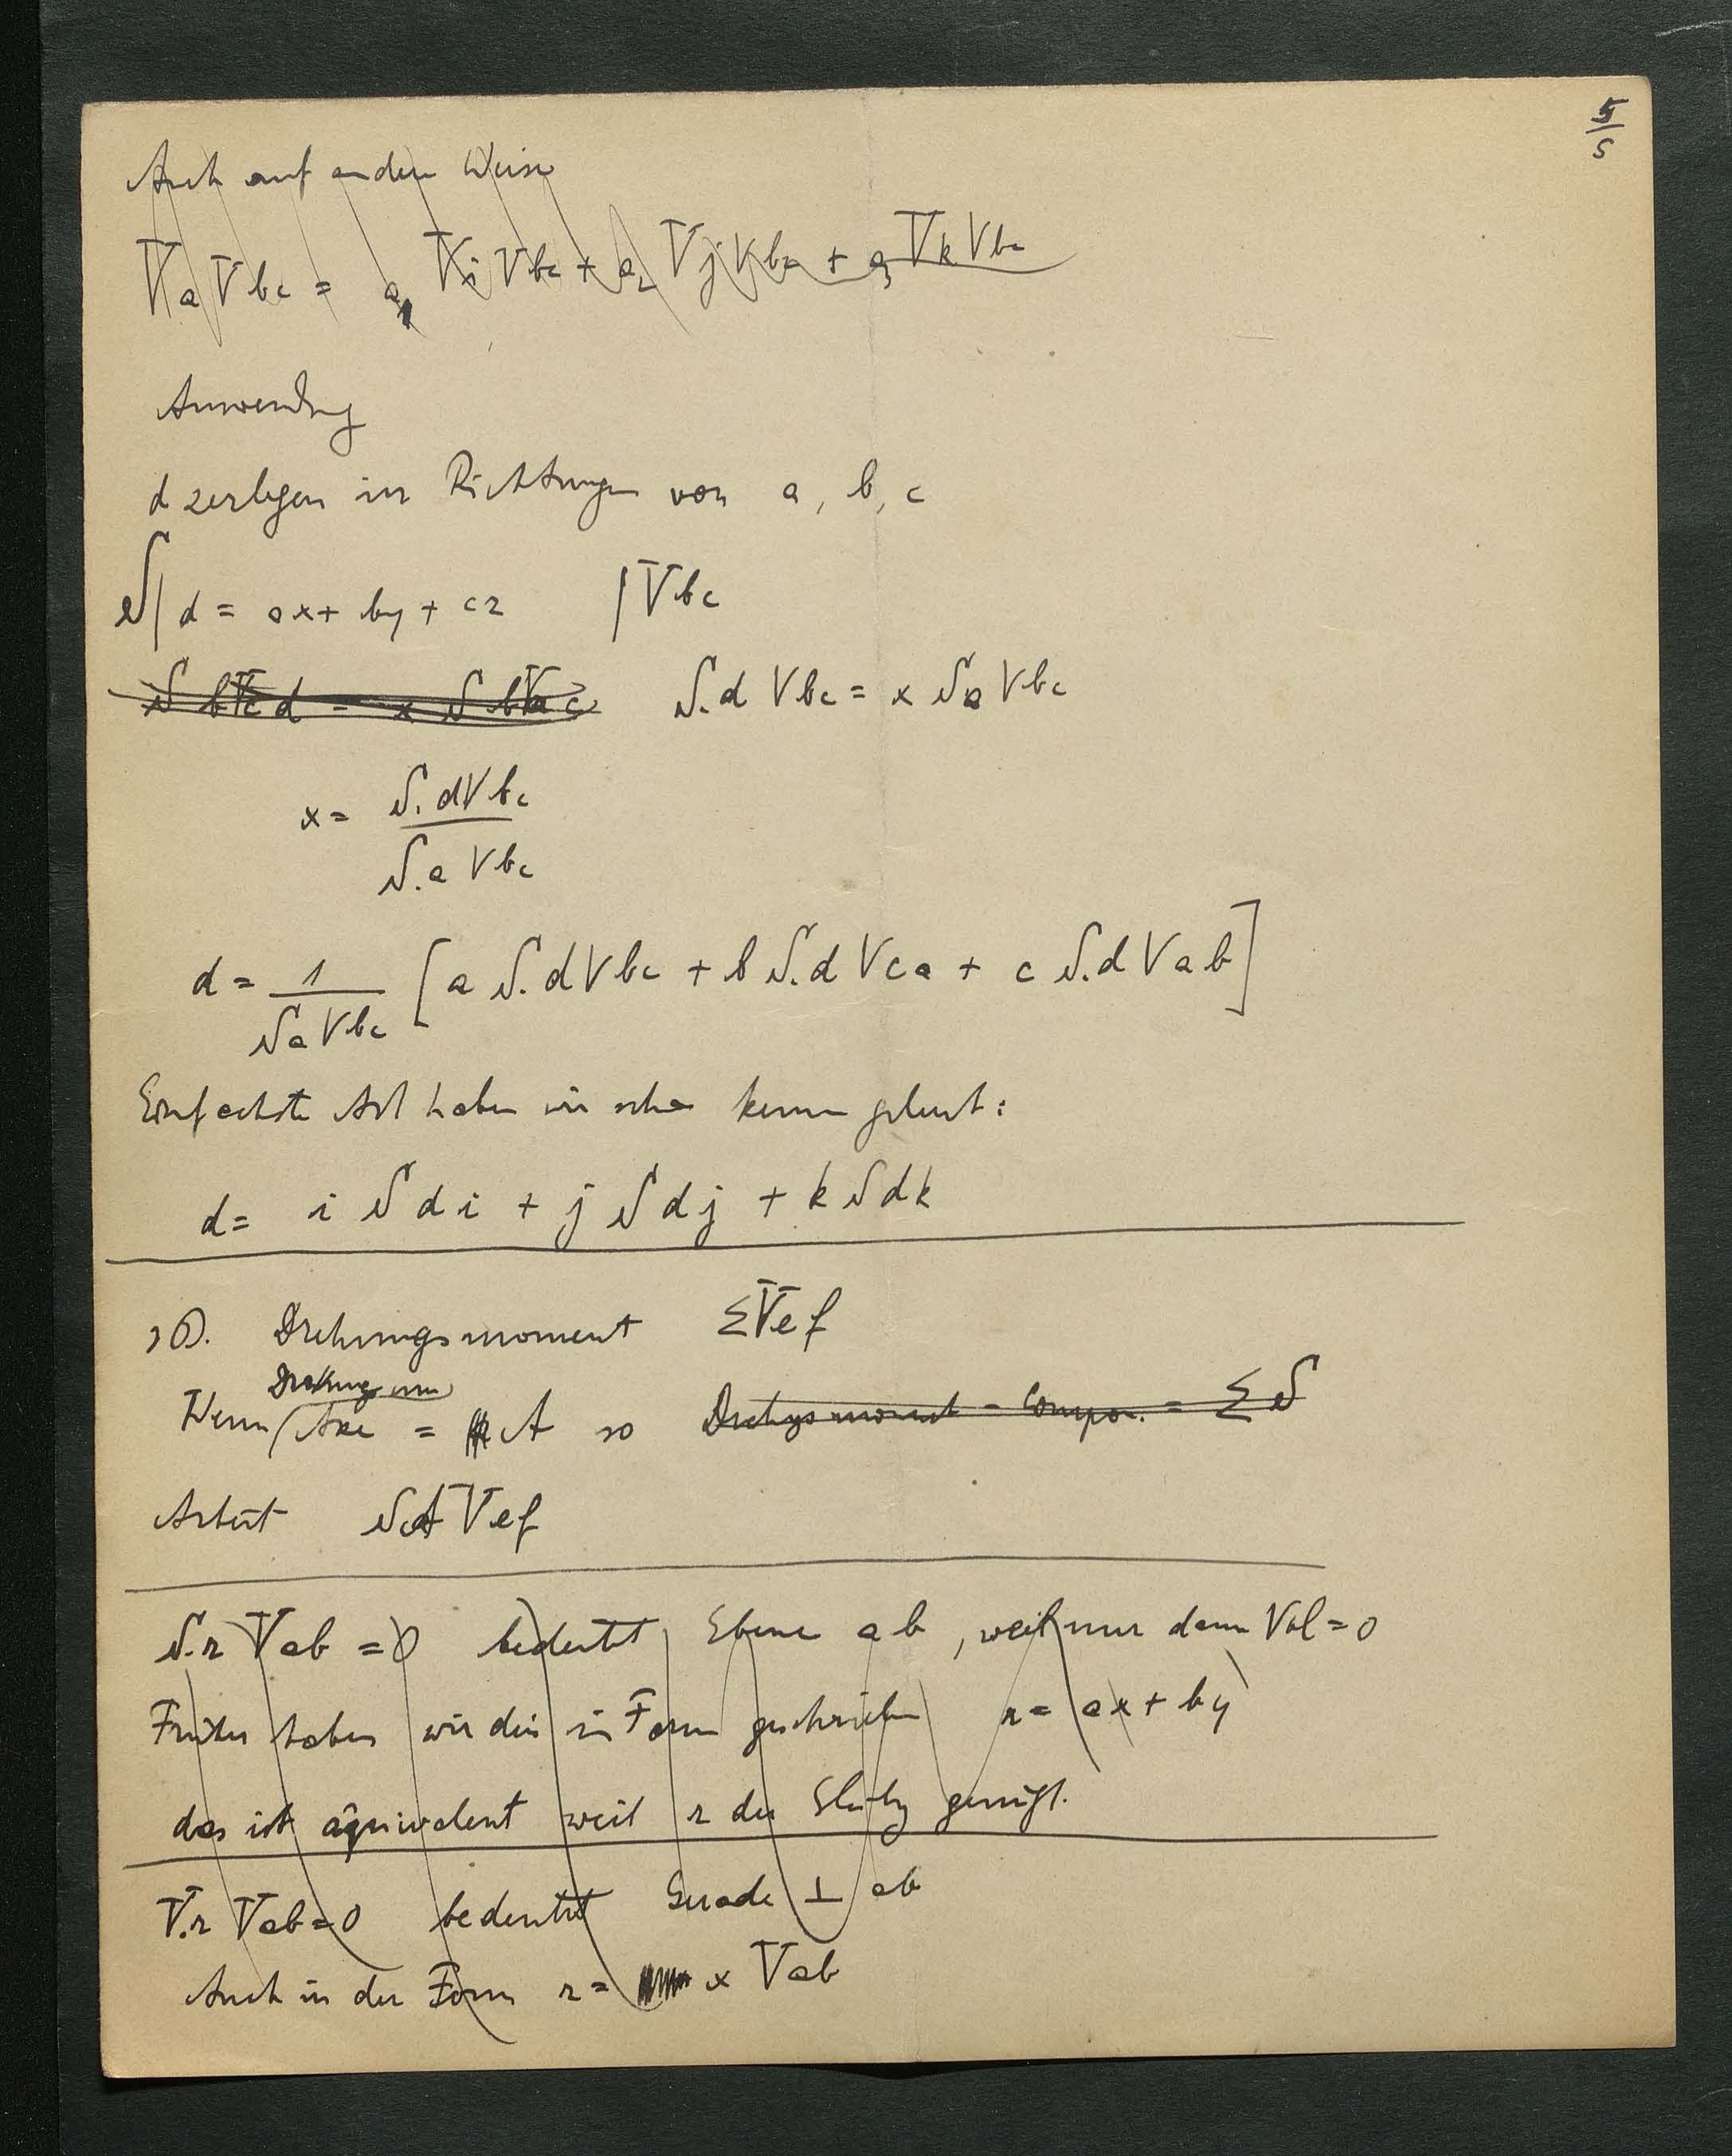 5
5
Auch auf andere Weise
VaVbc = a₁ ViVbc + a₂ VjVbc + a₃ VkVbc
Anwendung
d zerlegen in Richtungen von a, b, c
S| d = ax + by + cz |Vbc
S.d Vbc = x Sa Vbc
x = S.dVbc
S.a Vbc
d = 1 [a S.dVbc + b S.d Vca + c S.d Vab]
SaVbc
Einfachste Art haben wir schon kennen gelernt:
d = i S d i + j S d j + k S d k
Drehungsmoment ΣVef
Drehung um
Wenn Axe = A so Drehgsmoment - Compon. = Σ S
Arbeit SAVef
S.r Vab = 0 bedeutet Ebene ab, weil nur dann Vol = 0
Früher haben wir dies in Form geschrieben r = ax + by
das ist äquivalent weil r der Glchg genügt.
V.r Vab = 0 bedeutet Gerade ⊥ ab
Auch in der Form r = x Vab